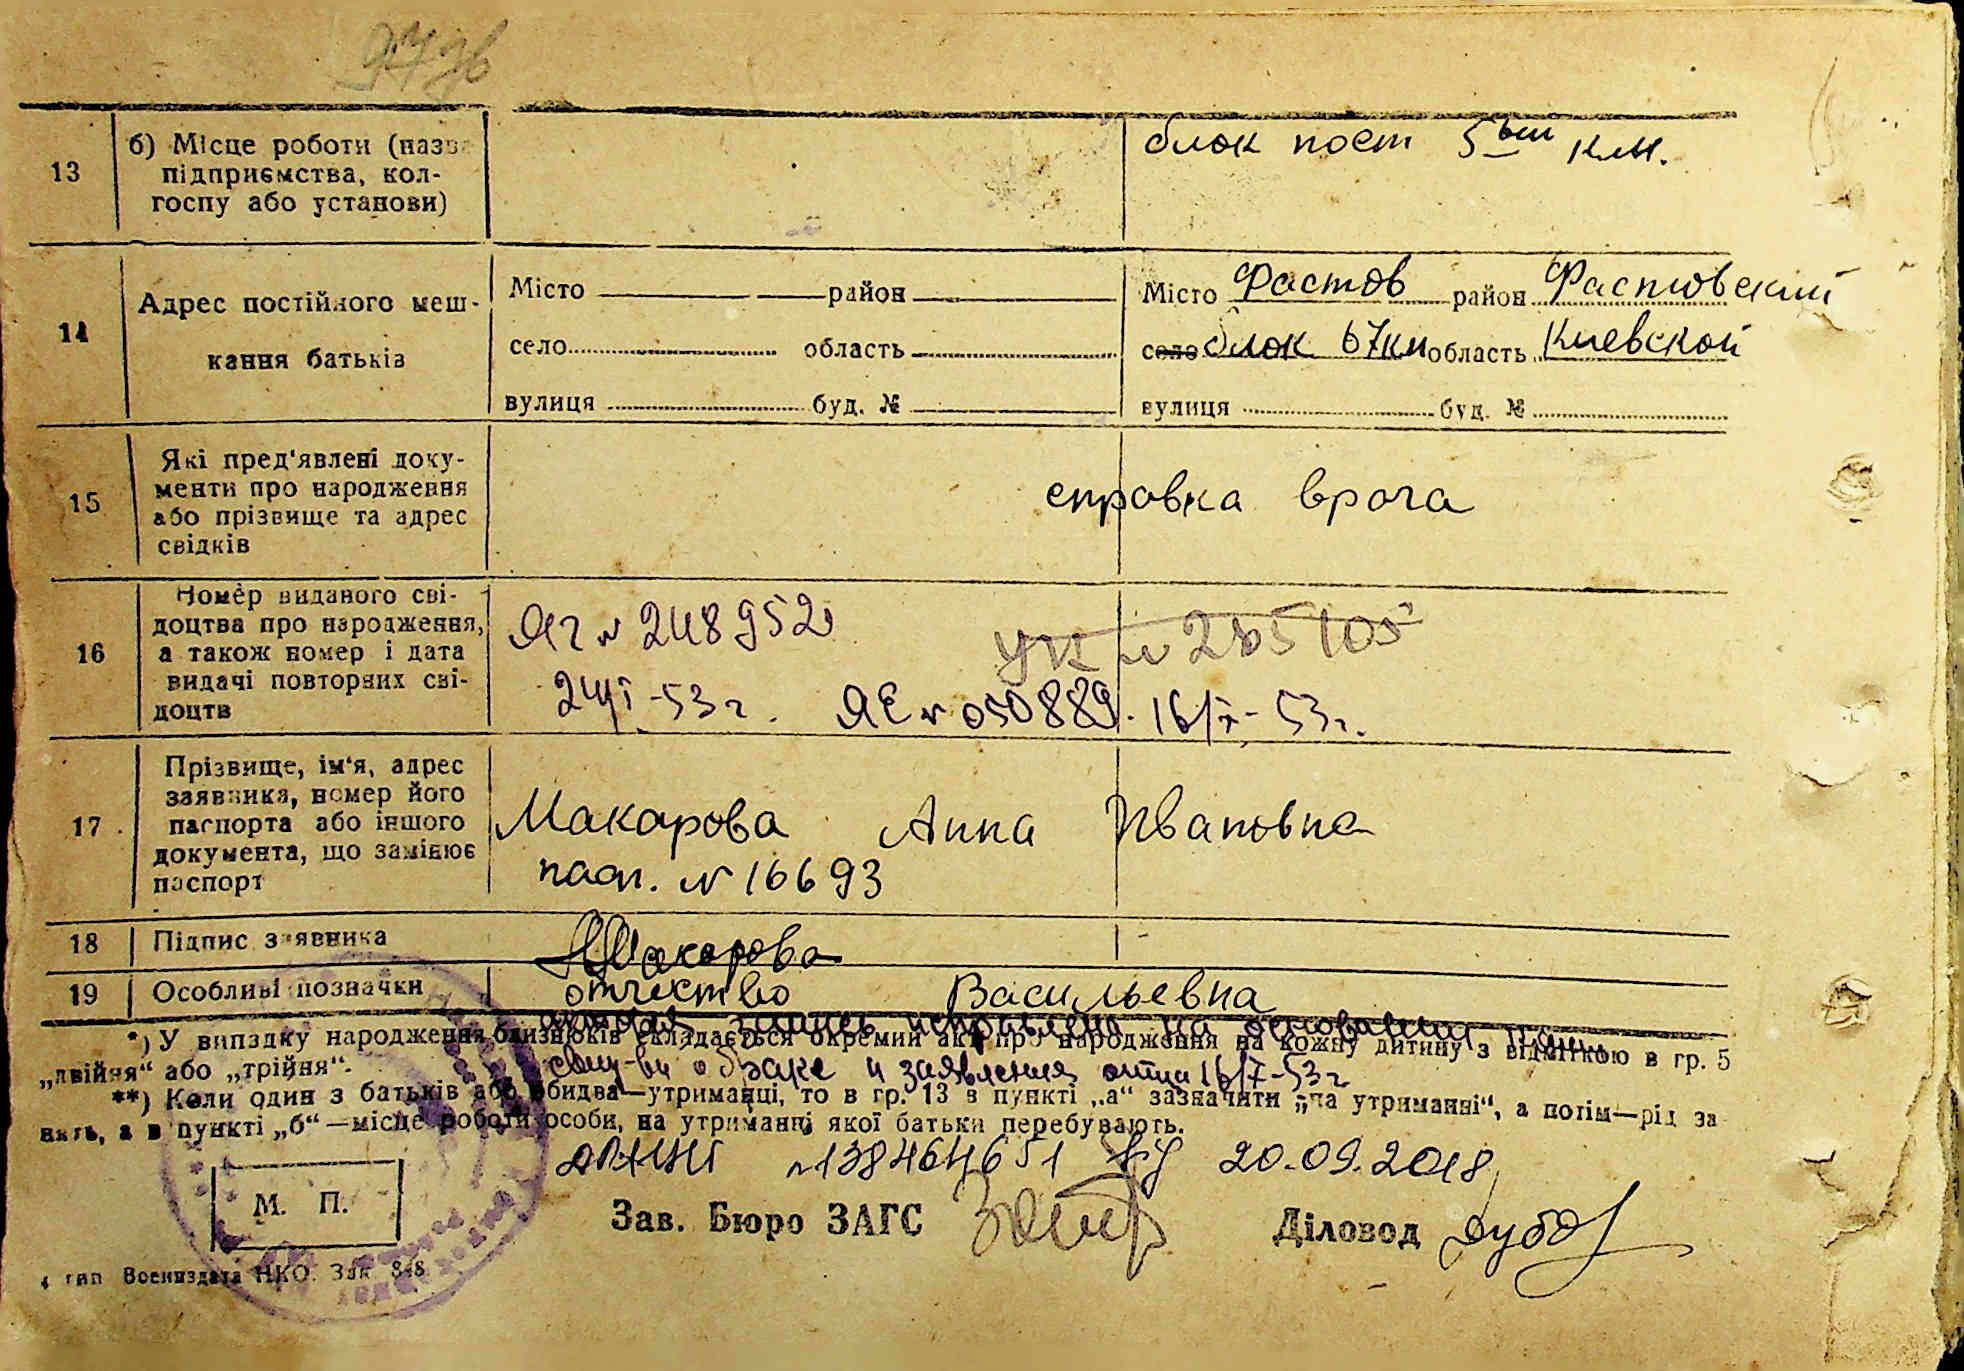 13
б) Місце роботи (назва
підприємства, кол-
госпу або установи)
блок пост 5ый км.
14
Адрес постійного меш-
кання батьків
Місто район
село область
вулиця буд. №
Місто Фастов район Фастовский
село блок 67км область Киевской
вулиця буд. №
15
Які пред'явлені доку-
менти про народження
або прізвище та адрес
свідків
справка врача
16
Номер виданого сві-
доцтва про народження,
а також номер і дата
видачі повторних сві-
доцтв
ЯГ № 248952
УК № 265105
24/І-53г. ЯЕ № 050889. 16/V-53г.
17
Прізвище, ім'я, адрес
заявника, номер його
паспорта або іншого
документа, що замінює
паспорт
Макарова Анна Ивановна
пасп. № 16693
18
Підпис заявника
АМакарова
19
Особливі позначки
отчество Васильевна
запись исправлена на основании
*) У випадку народження близнюків складається окремий акт про народження на кожну дитину з відміткою в гр. 5
„двійня“ або „трійня“.
свид-ва о браке и заявления отца 16/V-53г
**) Коли один з батьків або обидва—утриманці, то в гр. 13 в пункті „а“ зазначити „на утриманні“, а потім—рід за
нять, а в пункті „б“—місце роботи особи, на утриманні якої батьки перебувають.
№138464651 20.09.2018
М. П.
Зав. Бюро ЗАГС
Діловод
тип Воениздата НКО. Зак